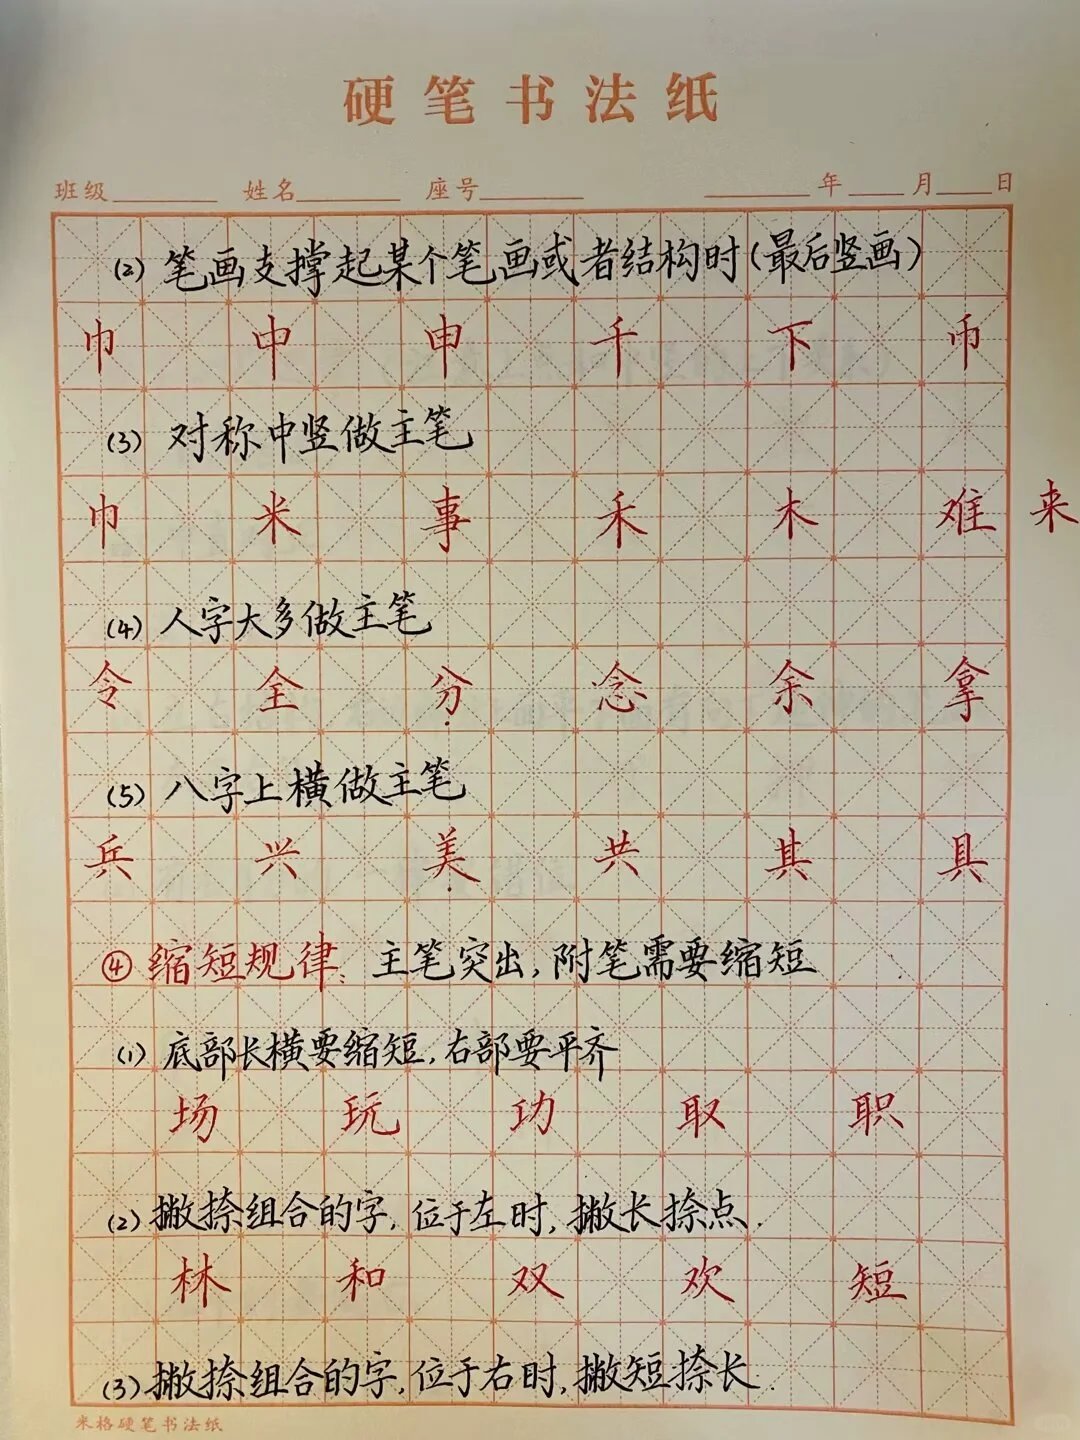 硬笔书法纸
班级 姓名 座号 年 月 日
(2) 笔画支撑起某个笔画或者结构时(最后竖画)
巾 中 申 千 下 币
(3) 对称中竖做主笔
巾 米 事 禾 木 难 来
(4) 人字大多做主笔
令 全 分 念 余 拿
(5) 八字上横做主笔
兵 兴 美 共 其 具
④ 缩短规律: 主笔突出,附笔需要缩短
(1) 底部长横要缩短,右部要平齐
场 玩 功 取 职
(2) 撇捺组合的字,位于左时,撇长捺点.
林 和 双 欢 短
(3) 撇捺组合的字,位于右时,撇短捺长.
米格硬笔书法纸